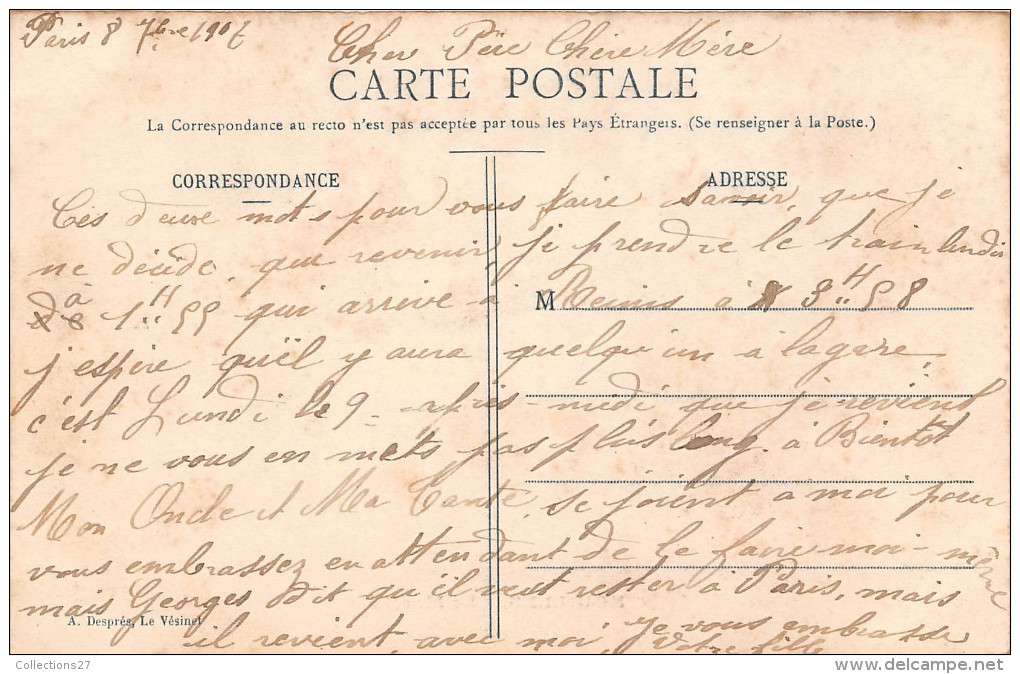 Paris 8 7bre 1907
Cher Père Chère Mère
CARTE POSTALE
La Correspondance au recto n'est pas acceptée par tous les Pays Étrangers. (Se renseigner à la Poste.)
CORRESPONDANCE
ADRESSE
Ces deux mots pour vous faire savoir, que je
ne décide, que revenir je prendre le train lundi
à 1H55 qui arrive à M Reims à 3H58
j'espère quël y aura quelqu'un a lagare,
c'est Lundi le 9 - après-midi que je revient
je ne vous en mets pas plus long. à Bientôt
Mon Oncle et Ma Tante se joient a moi pour
vous embrassez en attendant de le faire moi-même
mais Georges dit qu'il veut rester à Paris, mais
A. Després, Le Vésinet
il revient avec moi, Je vous embrasse
Votre fille
Collections27
delcampe.net